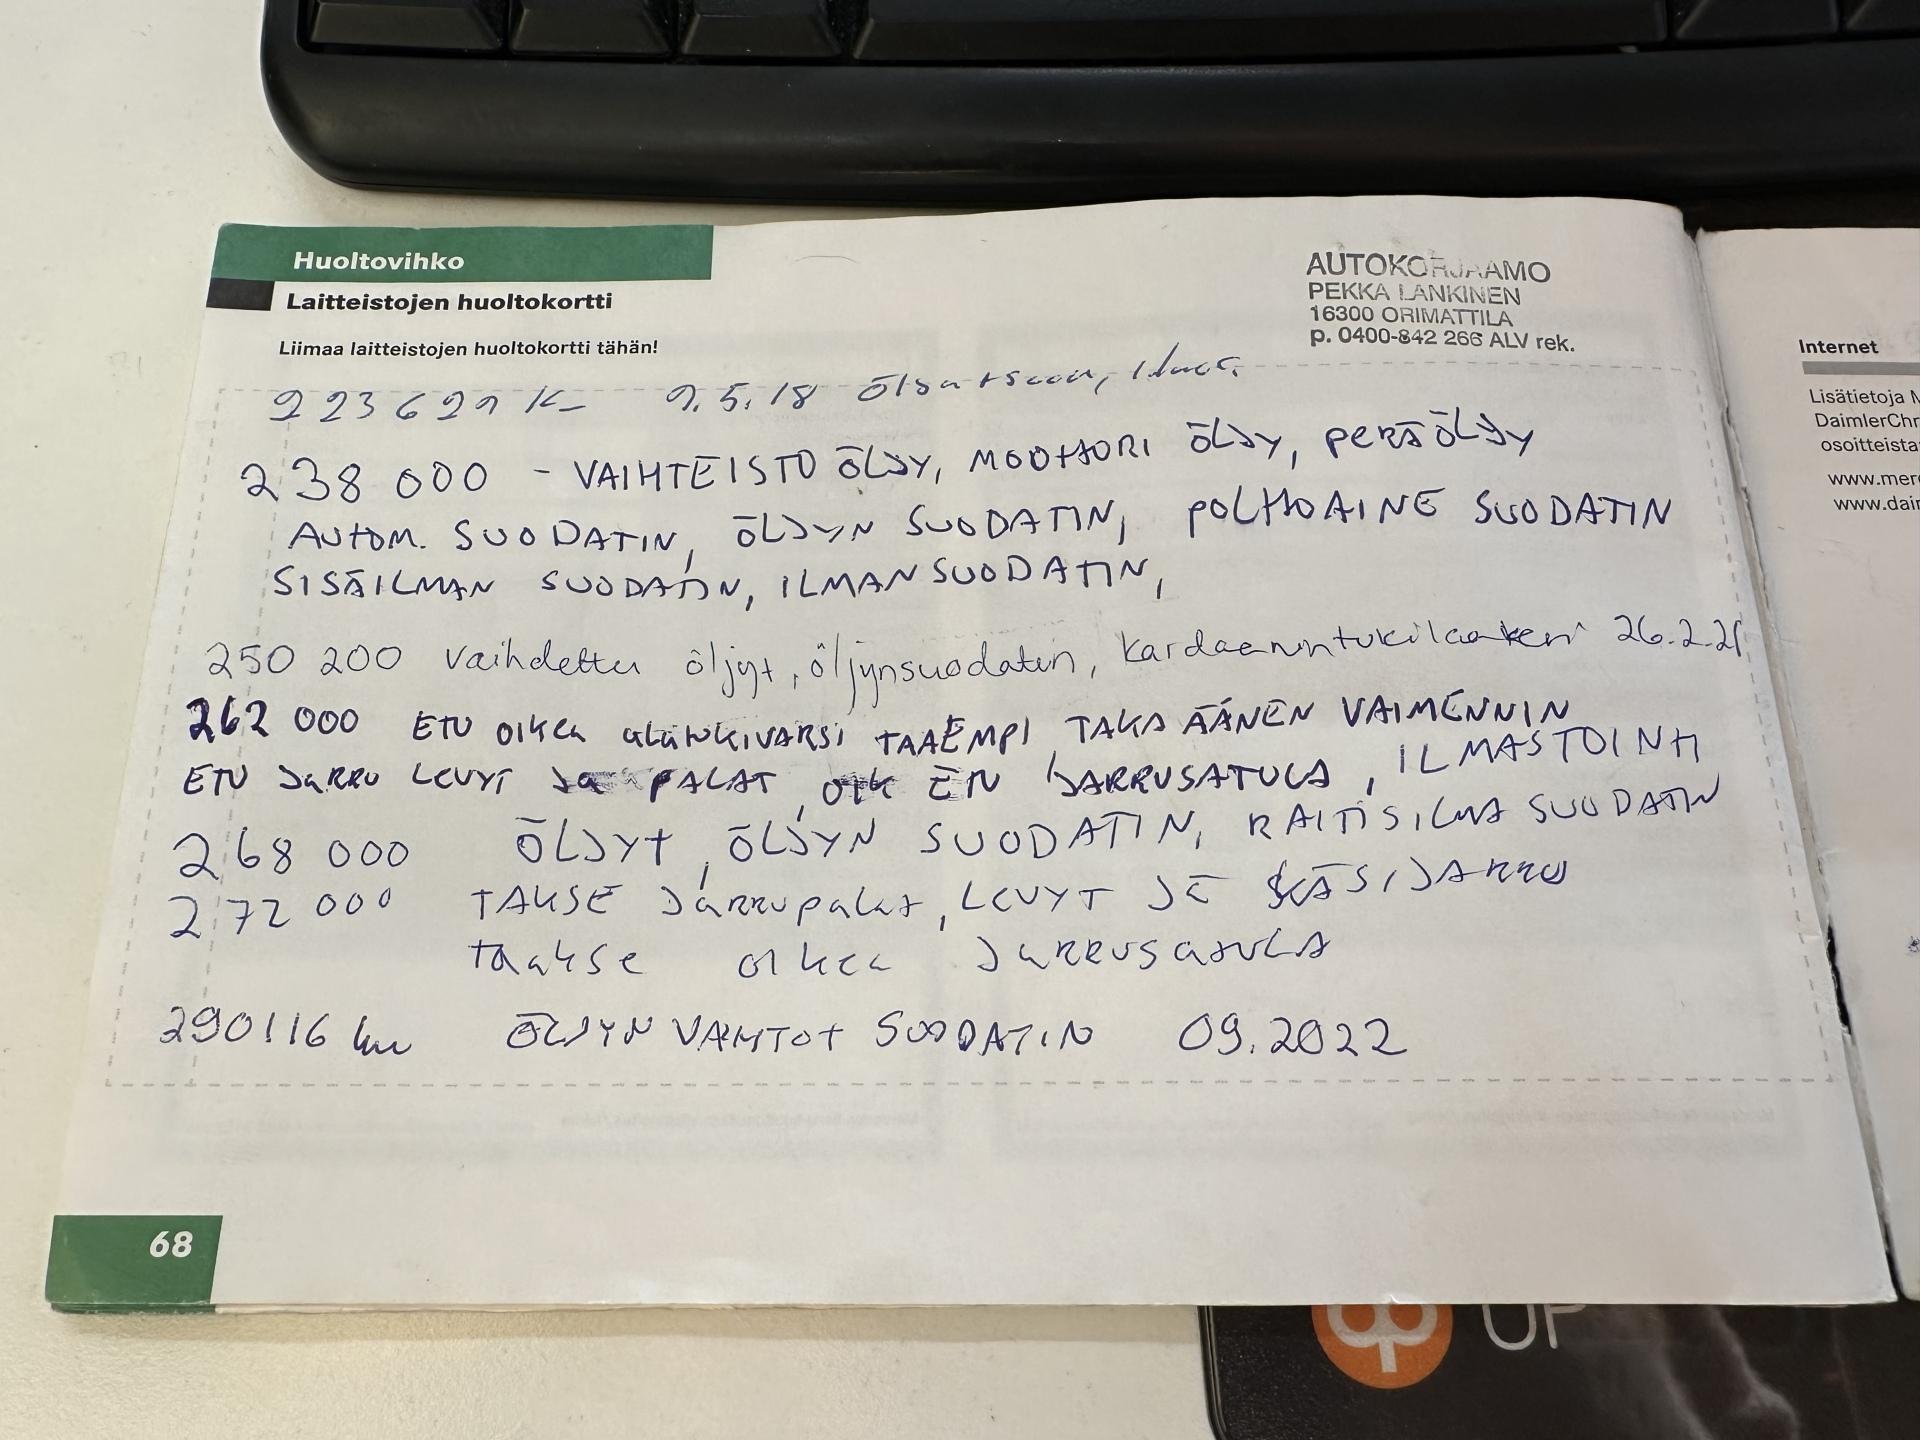 Huoltovihko
Laitteistojen huoltokortti
Liimaa laitteistojen huoltokortti tähän!
AUTOKORJAAMO
PEKKA LANKINEN
16300 ORIMATTILA
p. 0400-842 266 ALV rek.
223629 K 9.5.18
238 000 - VAIHTEISTO ÖLJY, MOOTTORI ÖLJY, PERÄÖLJY
AUTOM. SUODATIN, ÖLJYN SUODATIN, POLTTOAINE SUODATIN
SISÄILMAN SUODATIN, ILMANSUODATIN,
250 200 vaihdettu öljyt, öljynsuodatin, kardaanintukilaakeri 26.2.21
262 000 ETU OIKEA ALATUKIVARSI TAAEMPI, TAKA ÄÄNEN VAIMENNIN
ETU JARRU LEVYT JA PALAT, OIK ETU JARRUSATULA, ILMASTOINTI
268 000 ÖLJYT, ÖLJYN SUODATIN, RAITISILMA SUODATIN
272 000 TAKSE JARRUPALAT, LEVYT JA KÄSIJARRU
TAAKSE OIKEA JARRUSATULA
290116 km ÖLJYN VAIHTOT SUODATIN 09.2022
68
Internet
Lisätietoja M
DaimlerChr
osoitteista
www.merc
www.dain
OP